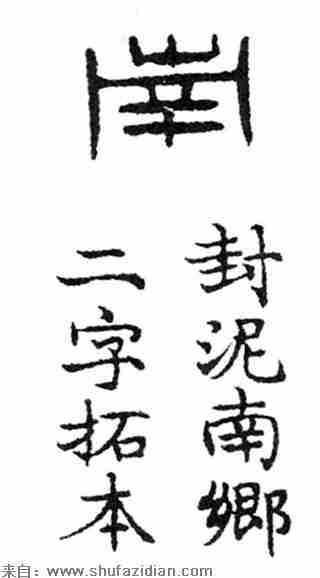 南
封泥南鄉
二字拓本
来自：www.shufazidian.com